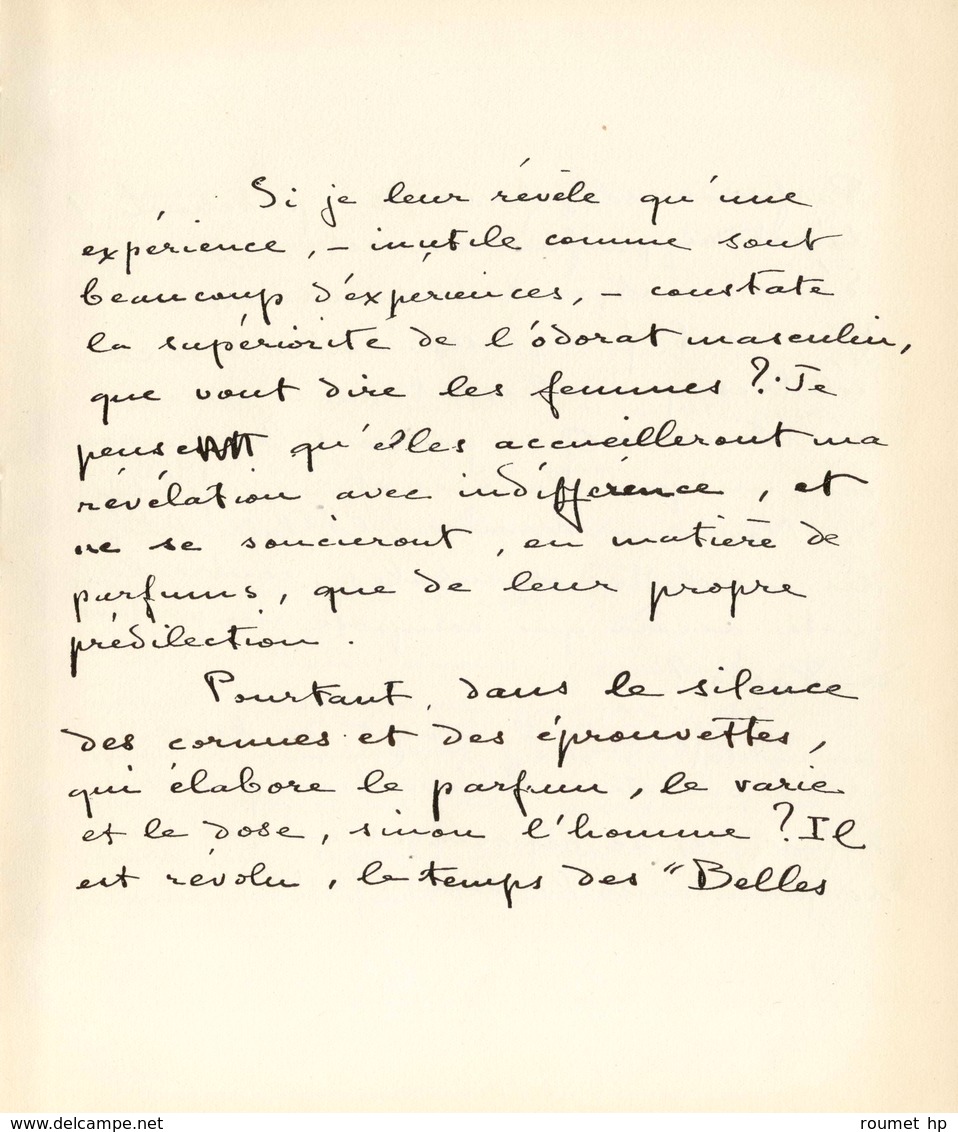 Si je leur révèle qu'une
expérience, – inutile comme sont
beaucoup d'expériences, – constate
la supériorité de l'odorat masculin,
que vont dire les femmes ? Je
pense qu'elles accueilleront ma
révélation avec indifférence, et
ne se soucieront, en matière de
parfums, que de leur propre
prédilection.
Pourtant, dans le silence
des cornues et des éprouvettes,
qui élabore le parfum, le varie
et le dose, sinon l'homme ? Il
est révolu, le temps des "Belles
www.delcampe.net
roumet hp